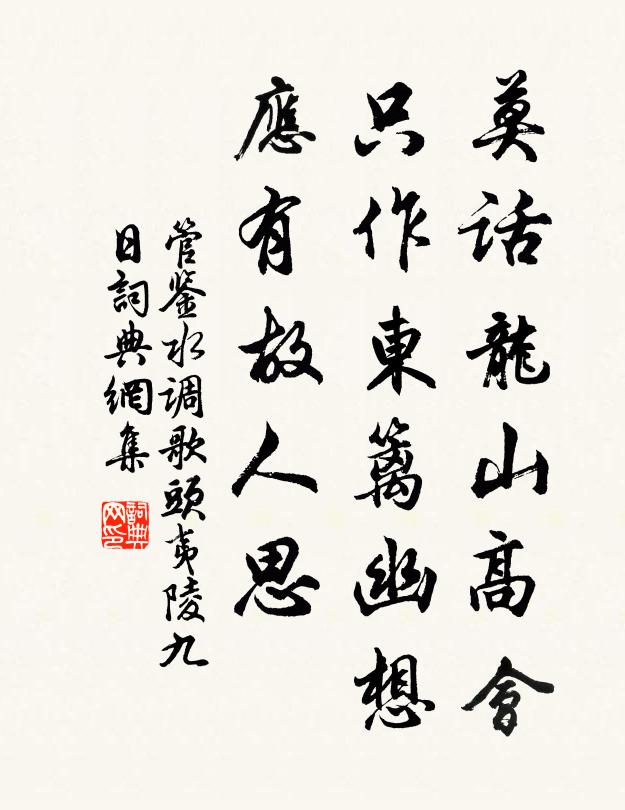 莫話龍山高會
只作東籬幽想
應有故人思
管鉴水调歌頭夷陵九
日詞典網集
詞典
网印